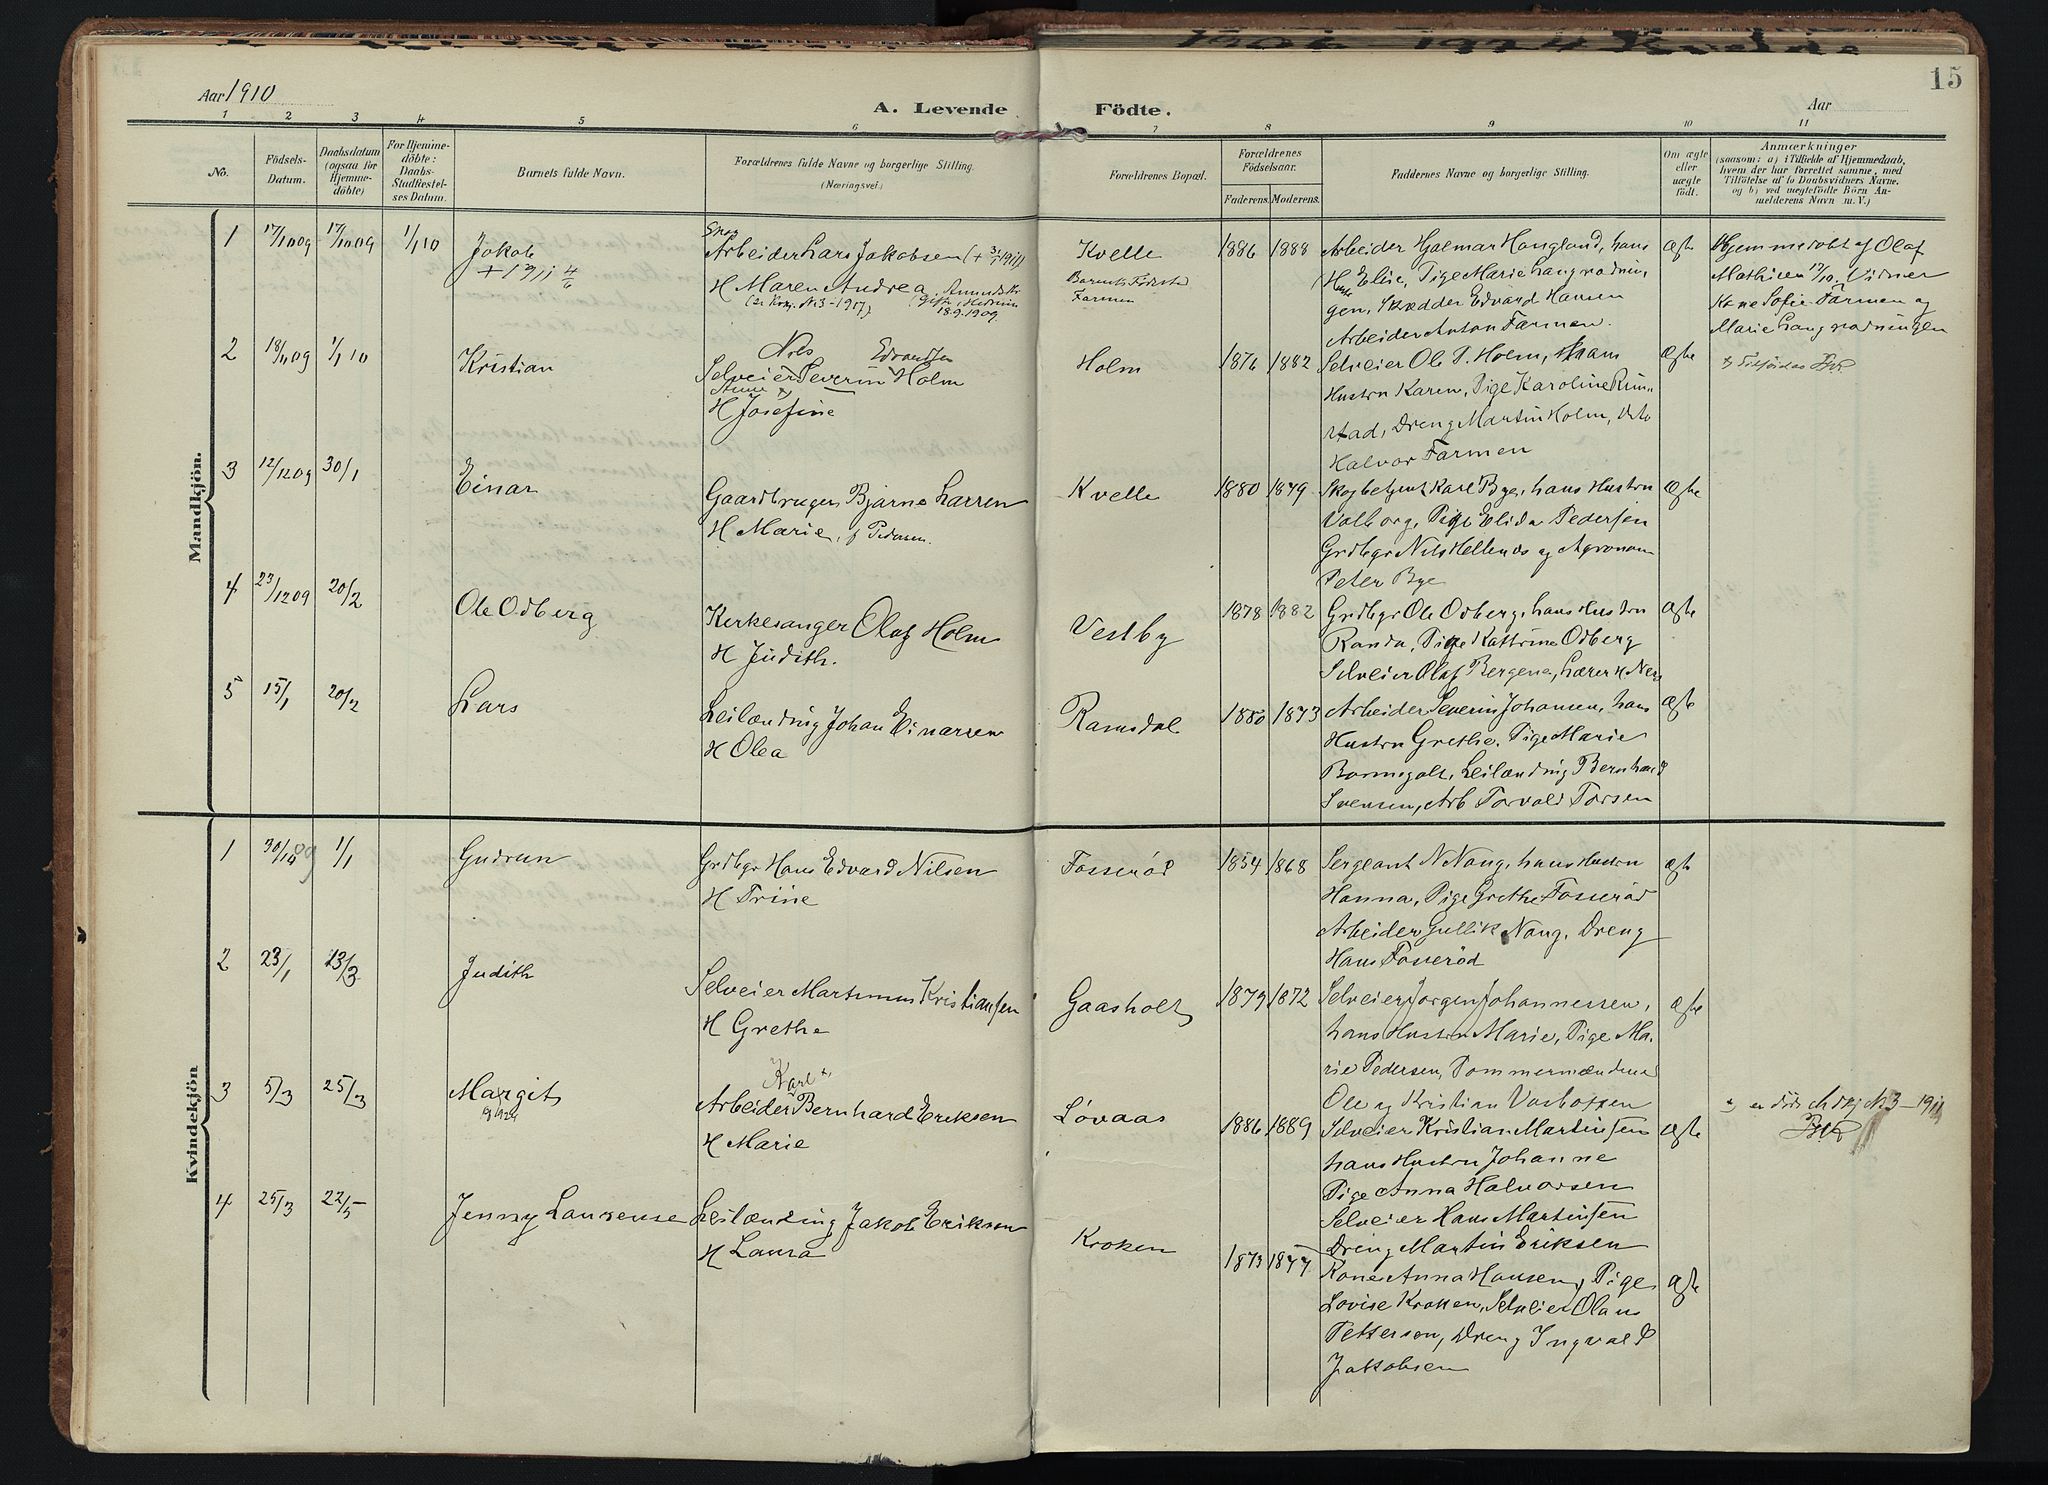 15
Aar 1910
A. Levende Födte.
Aar
1 2 3 4 5 6 7 8 9 10 11
No.
Födsels-
Datum.
Daabsdatum
(ogsaa for
Hjemme-
döbte)
For Hjemme-
döbte:
Daabs-
Stadfæstel-
ses Datum.
Barnets fulde Navn.
Forældrenes fulde Navne og borgerlige Stilling.
(Næringsvei.)
Forældrenes Bopæl.
Forældrenes
Födselsaar.
Faderens. Moderens.
Faddernes Navne og borgerlige Stilling.
Om ægte
eller
uægte
födt.
Anmærkninger
(saasom: a) i Tilfælde af Hjemmedaab,
hvem der har forrettet samme, med
Tilföielse af to Daabsvidners Navne,
og b) ved uægtefödte Börn An-
melderens Navn m. V.)
Mandkjön.
1 17/10 09 17/10 09 1/1 10
Jakob
+ 1911 4/6
Arbeider Lars Jakobsen
H Maren Andrea
(se Kom. N 3-1917)
Gift i Hedrum
18.9.1909.
Kvelle
Barnets Födested
Farmen
1886 1888
Arbeider Hjalmar Haugland, hans
H Elise, Pige Marie Langrødnin
gen, Skrædder Edvard Hansen
Arbeider Anton Farmen.
Ægte
Hjemmedøbt af Olaf
Mathisen 17/10. Vidner
Kone Sofie Farmen og
Marie Langrødningen
2 18/11 09 1/1 10
Kristian
Nils Edvardsen
Selveier Severin Holm
H Josefine
Holm
1876 1882
Selveier Ole P. Holm, hans
Hustru Karen, Pige Karoline Rim-
stad, Dreng Martin Holm, Dito
Halvor Farmen
Ægte
x) Tilføides
3 12/12 09 30/1
Einar
Gaardbruger Bjarne Larsen
H Marie, f Pedersen.
Kvelle
1880 1879
Skogbetjent Karl Bye, hans Hustru
Valborg, Pige Elida Pedersen
Grdbgr Nils Hellenes og Agronom
Peter Bye
Ægte
4 23/12 09 20/2
Ole Odberg
Kirkesanger Olaf Holm
H Judith.
Vestby
1878 1882
Grdbgr Ole Odberg, hans Hustru
Randa, Pige Kathrine Odberg
Selveier Olaf Bergene, Lærer H Nes
Ægte
5 15/1 20/2
Lars
Leilænding Johan Einarsen
H Olea
Ramsdal
1880 1873
Arbeider Severin Johansen, hans
Hustru Grethe, Pige Marie
Bommsholt, Leilænding Bernhard
Svensen, Arb Torvald Torsen
Ægte
Kvindekjön
1 30/10 09 1/1
Gudrun
Grdbgr Hans Edvard Nilsen
H Trine
Fosserød
1854 1868
Sergeant N Naug, hans Hustru
Hanna, Pige Grethe Fosserød
Arbeider Gullik Naug, Dreng
Hans Fosserød
Ægte
2 23/1 13/3
Judith
Selveier Martinius Kristiansen
H Grethe
Gaasholt
1879 1872
Selveier Jørgen Johannessen,
hans Hustru Marie, Pige Ma-
rie Pedersen, Tommermændene
Ole og Kristian Vasbotten
Ægte
3 5/3 25/3
Margit
g 1924
Karl x)
Arbeider Bernhard Eriksen
H Marie
Løvaas
1886 1889
Selveier Kristian Martinsen
hans Hustru Johanne
Pige Anna Halvorsen
Selveier Hans Martinsen
Dreng Martin Eriksen
Ægte
x) er død, Mdkj N 3-1911
4 25/3 22/5
Jenny Laurense
Leilænding Jakob Eriksen
H Laura
Kroken
1873 1877
Kone Anna Hansen, Pige
Lovise Kroken, Selveier Olaus
Pettersen, Dreng Ingvald
Jakobsen
Ægte